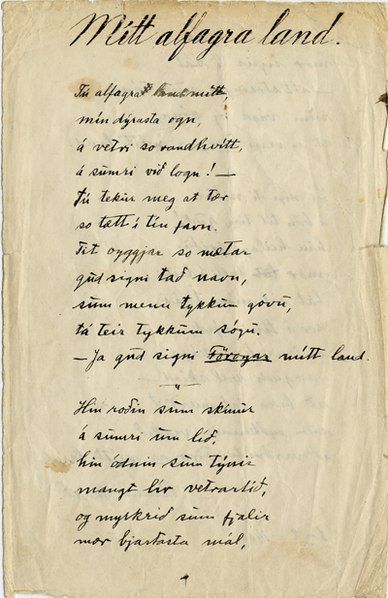 Mítt alfagra land.
Tú alfagra land mítt,
mín dýrasta ogn,
á vetri so randhvítt,
á sumri við logn! —
tú tekur meg at tær
so tætt í tín favn.
Tit oyggjar so mætar
gud signi tað navn,
sum menn tykkum góvu,
tá teir tykkum sógu.
— Ja gud signi Föroyar mítt land.
"
Hin roðin sum skínur
á sumri um líð,
hin ódnin sum týnir
mangt lív vetrartíð,
og myrkrið sum fjalir
mær bjartasta mál,